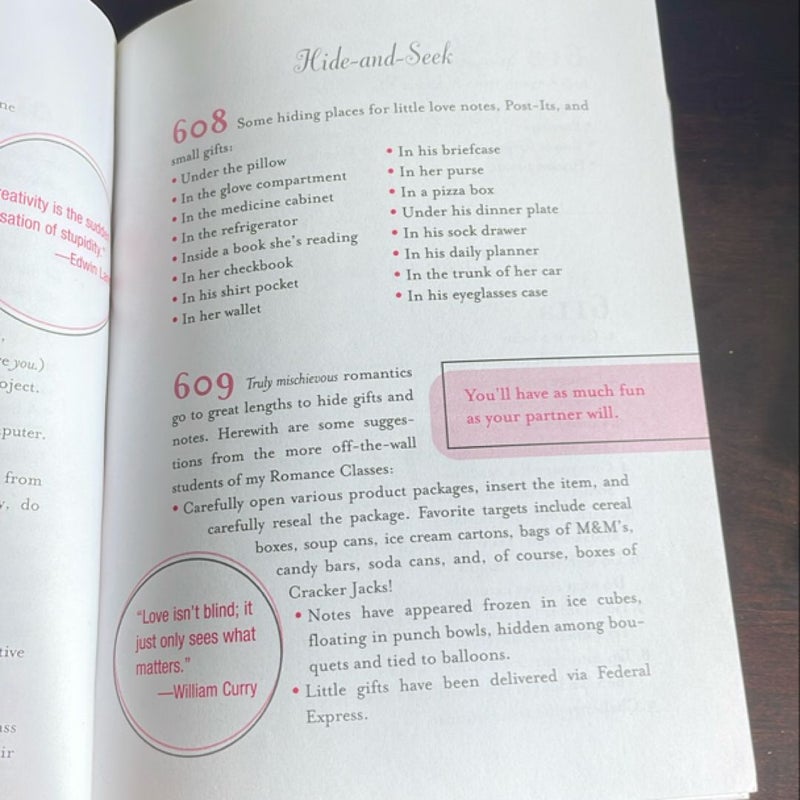 ne
eativity is the
sation of stupidity."
—Edwin
e you.)
oject.
puter.
from
y, do
tive
ass
ir
Hide-and-Seek
608 Some hiding places for little love notes, Post-Its, and
small gifts:
• Under the pillow
• In the glove compartment
• In the medicine cabinet
• In the refrigerator
• Inside a book she's reading
• In her checkbook
• In his shirt pocket
• In her wallet
• In his briefcase
• In her purse
• In a pizza box
• Under his dinner plate
• In his sock drawer
• In his daily planner
• In the trunk of her car
• In his eyeglasses case
609 Truly mischievous romantics
go to great lengths to hide gifts and
notes. Herewith are some sugges-
tions from the more off-the-wall
students of my Romance Classes:
You'll have as much fun
as your partner will.
• Carefully open various product packages, insert the item, and
carefully reseal the package. Favorite targets include cereal
boxes, soup cans, ice cream cartons, bags of M&M's,
candy bars, soda cans, and, of course, boxes of
Cracker Jacks!
• Notes have appeared frozen in ice cubes,
floating in punch bowls, hidden among bou-
quets and tied to balloons.
• Little gifts have been delivered via Federal
Express.
"Love isn't blind; it
just only sees what
matters."
—William Curry